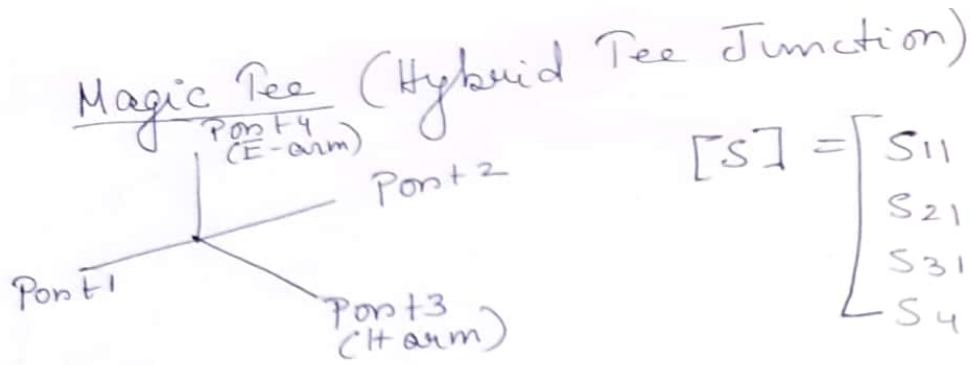 Magic Tee (Hybrid Tee Junction)
Port 4
(E-arm)
Port 2
Port 1
Port 3
(H arm)
[S] = [ S11
S21
S31
S4